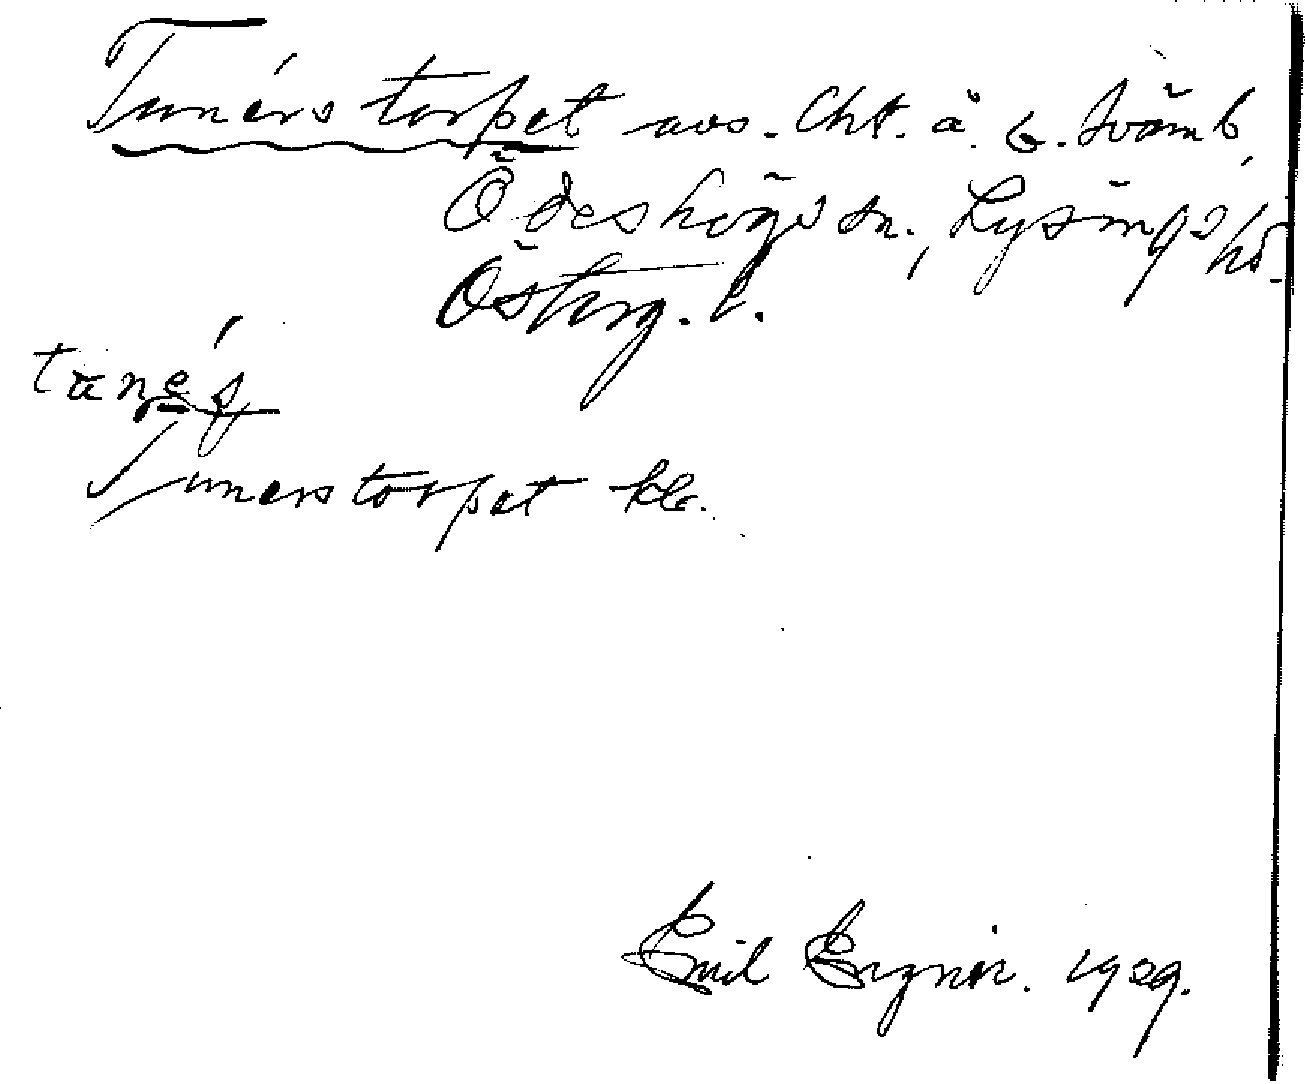 Tunérstorpet avs. Cht. å ö. Svämb,
Ödeshögs sn., Lysings hd.
Österg. l.
tunés
Tunerstorpet kb.
Emil Ergnér. 1929.